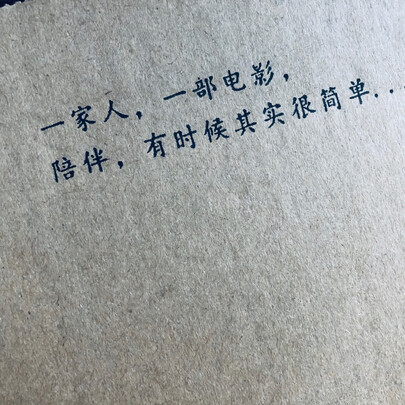 一家人，一部电影，
陪伴，有时候其实很简单...